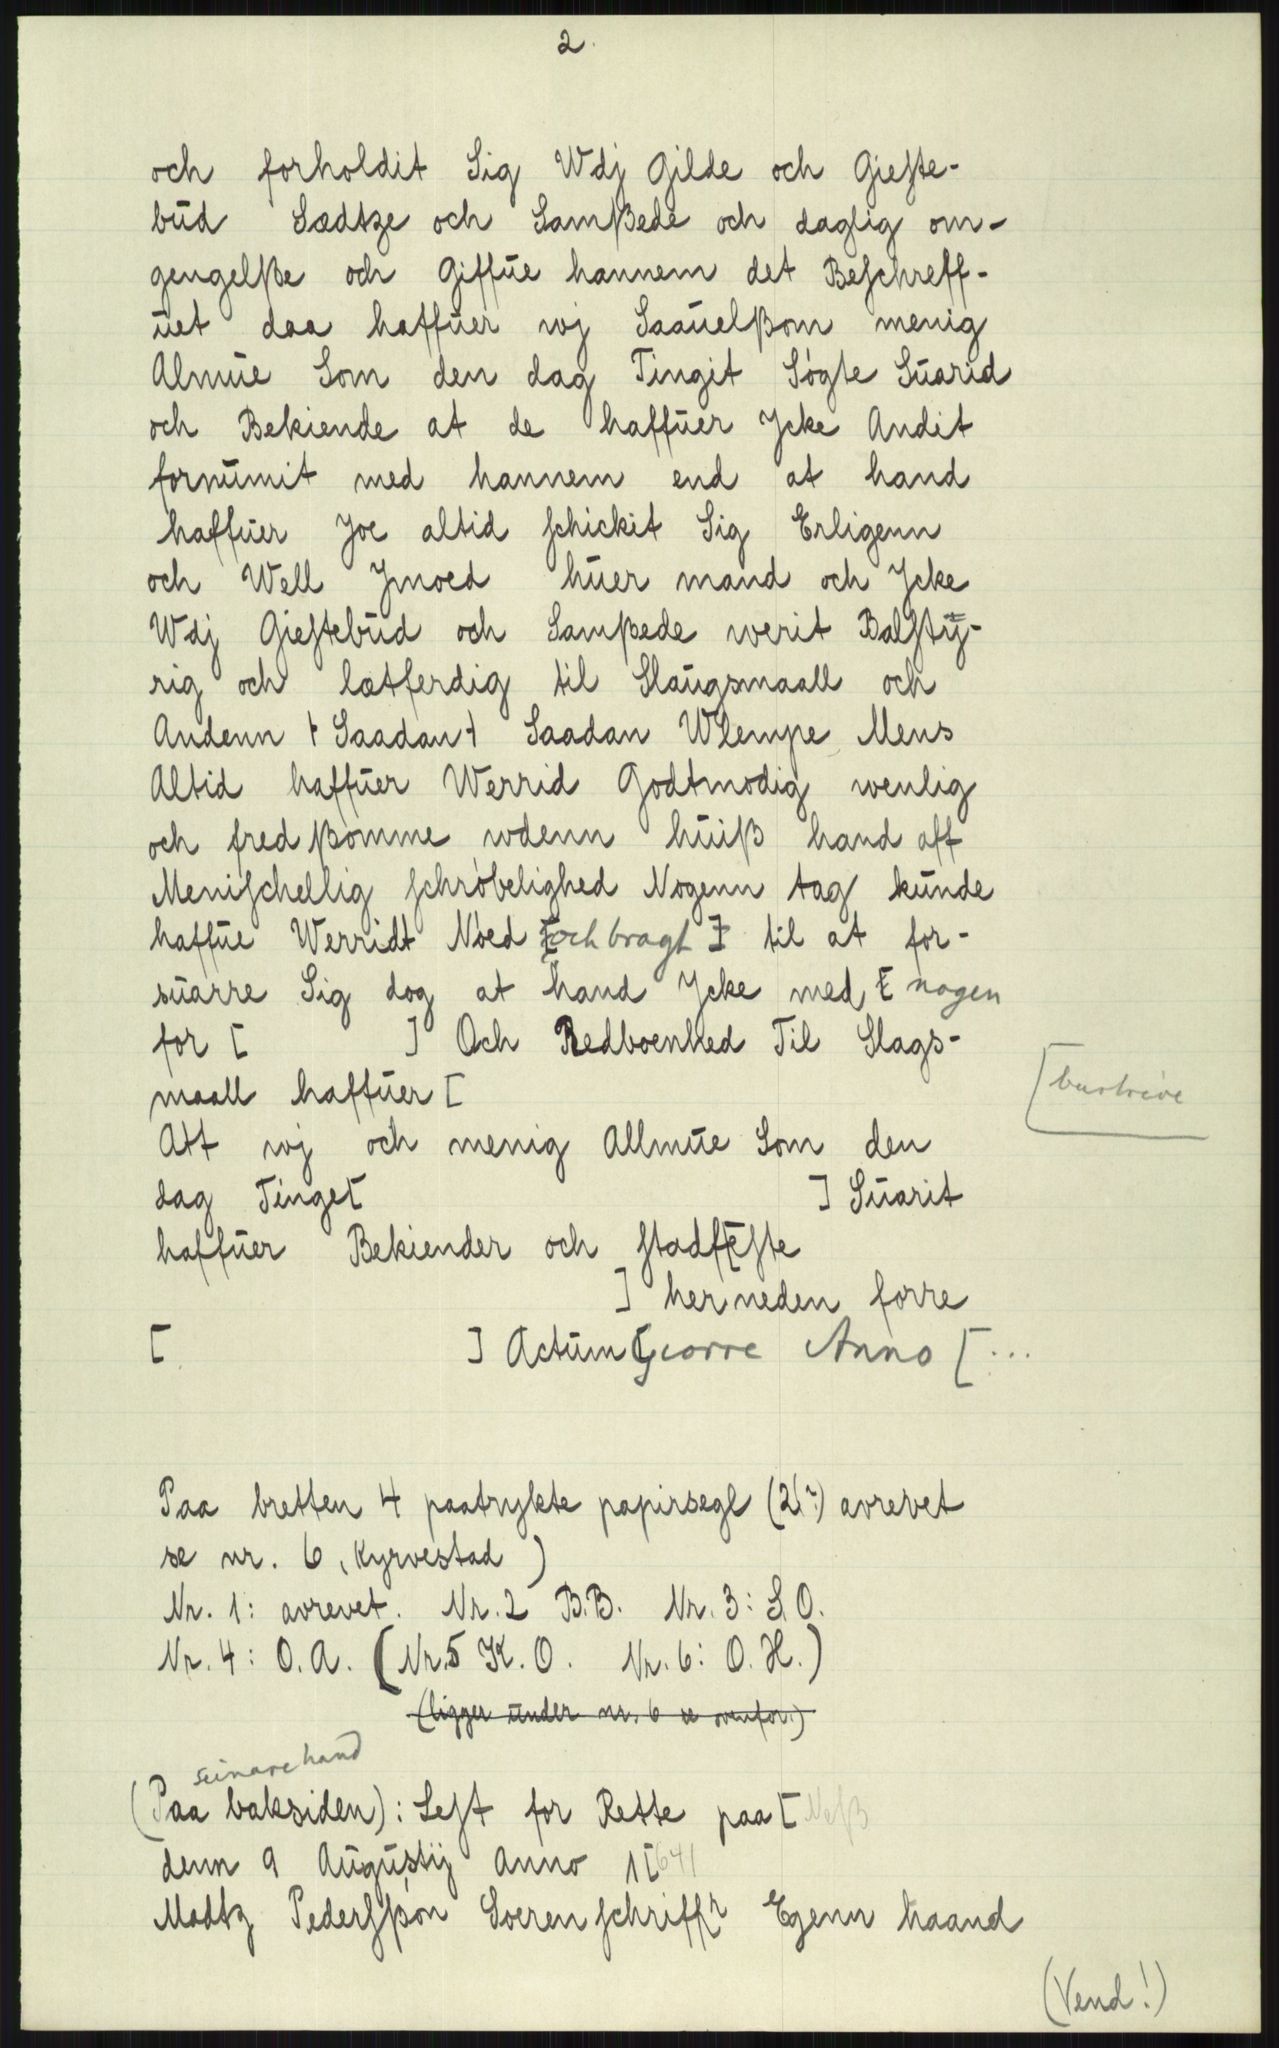 2.
och forholdit Sig Wdj Gilde och Gieste-
bud Sædtze och Samßede och daglig om-
gengelße och Giffue hannem det Beschreff-
uet daa haffuer wj Saauelßom menig
Almue Som den dag Tingit Søgte Suarid
och Bekiende at de haffuer Jcke Andit
fornumit med hannem end at hand
haffuer Joe altid schickit Sig Erligenn
och Well Jmoed huer mand och Jcke
Wdj Giestebud och Samßede werit Balsty-
rig och lætferdig til Slaugsmaall och
Andenn ƚ Saadan ƚ Saadan Wlempe Mens
Altid haffuer Werrid Godtmodig wenlig
och fredßomme wdenn huiß hand aff
Menischellig schrøbelighed Nogenn tag kunde
haffue Werridt Nøed [och bragt] til at for-
suarre Sig dog at hand Jcke med [nogen
for [ ] Och Redboenhed Til Slags-
maall haffuer [
[bustrive
Att wj och menig Allmue Som den
dag Tinge[ ] Suarit
haffuer Bekiender och stadf[este
] her neden forre
[ ] Actum [Giorre Anno [...
Paa bretten 4 paatrykte papirsegl (2(?) avrevet
se nr. 6, Kyrvestad)
Nr. 1: avrevet. Nr. 2 B.B. Nr. 3: S.O.
Nr. 4: O.A. (Nr. 5 K.O. Nr. 6: O.H.)
(ligger under nr. 6 se ovenfor.)
seinare hand
(Paa baksiden): Lest for Rette paa [Neß
denn 9 Augustij Anno 1[641
Madtz Pederssøn Soerenschriffr Egenn haand
(Vend!)